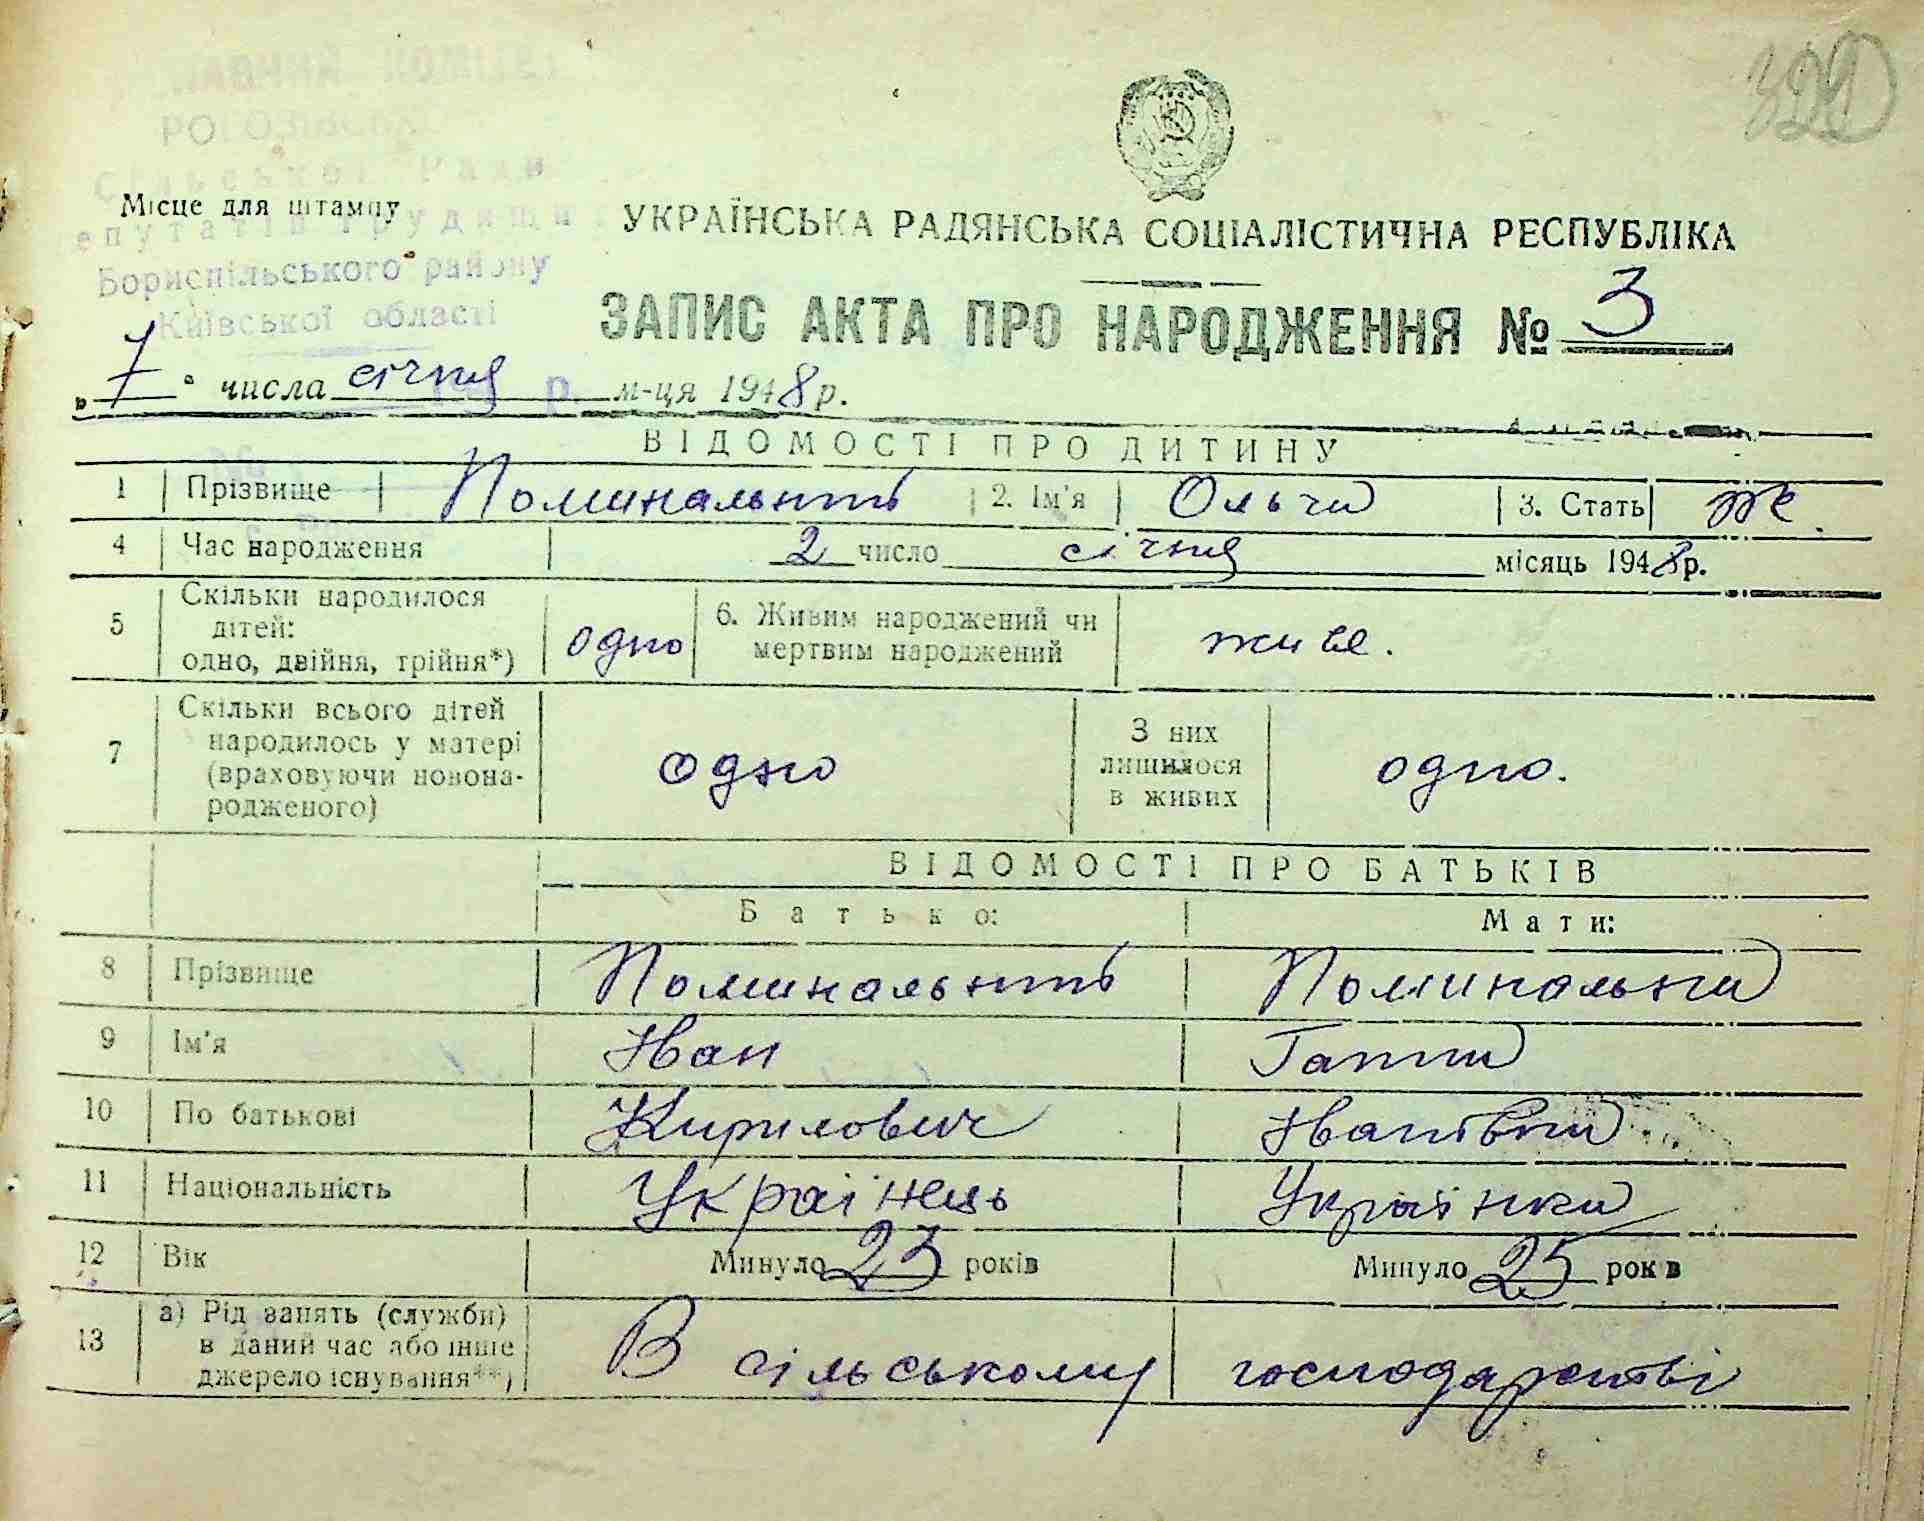 322
Місце для штампу
РОГОЗІВСЬКОЇ
Сільської Ради
депутатів трудящих
Бориспільського району
Київської області
УКРАЇНСЬКА РАДЯНСЬКА СОЦІАЛІСТИЧНА РЕСПУБЛІКА
ЗАПИС АКТА ПРО НАРОДЖЕННЯ № 3
„7" числа січня м-ця 1948 р.
ВІДОМОСТІ ПРО ДИТИНУ
1 Прізвище 2. Ім'я Ольга 3. Стать ж.
4 Час народження 2 число січня місяць 1948 р.
5 Скільки народилося дітей: одно, двійня, трійня*) одно 6. Живим народжений чи мертвим народжений живе.
7 Скільки всього дітей народилось у матері (враховуючи новонародженого) одно З них лишилося в живих одно.
ВІДОМОСТІ ПРО БАТЬКІВ
Батько: Мати:
8 Прізвище Поминальна
9 Ім'я Іван Ганна
10 По батькові Кирилович Іванівна
11 Національність Українець Українка
12 Вік Минуло 23 років Минуло 25 років
13 а) Рід занять (служби) в даний час або інше джерело існування**) В сільському господарстві